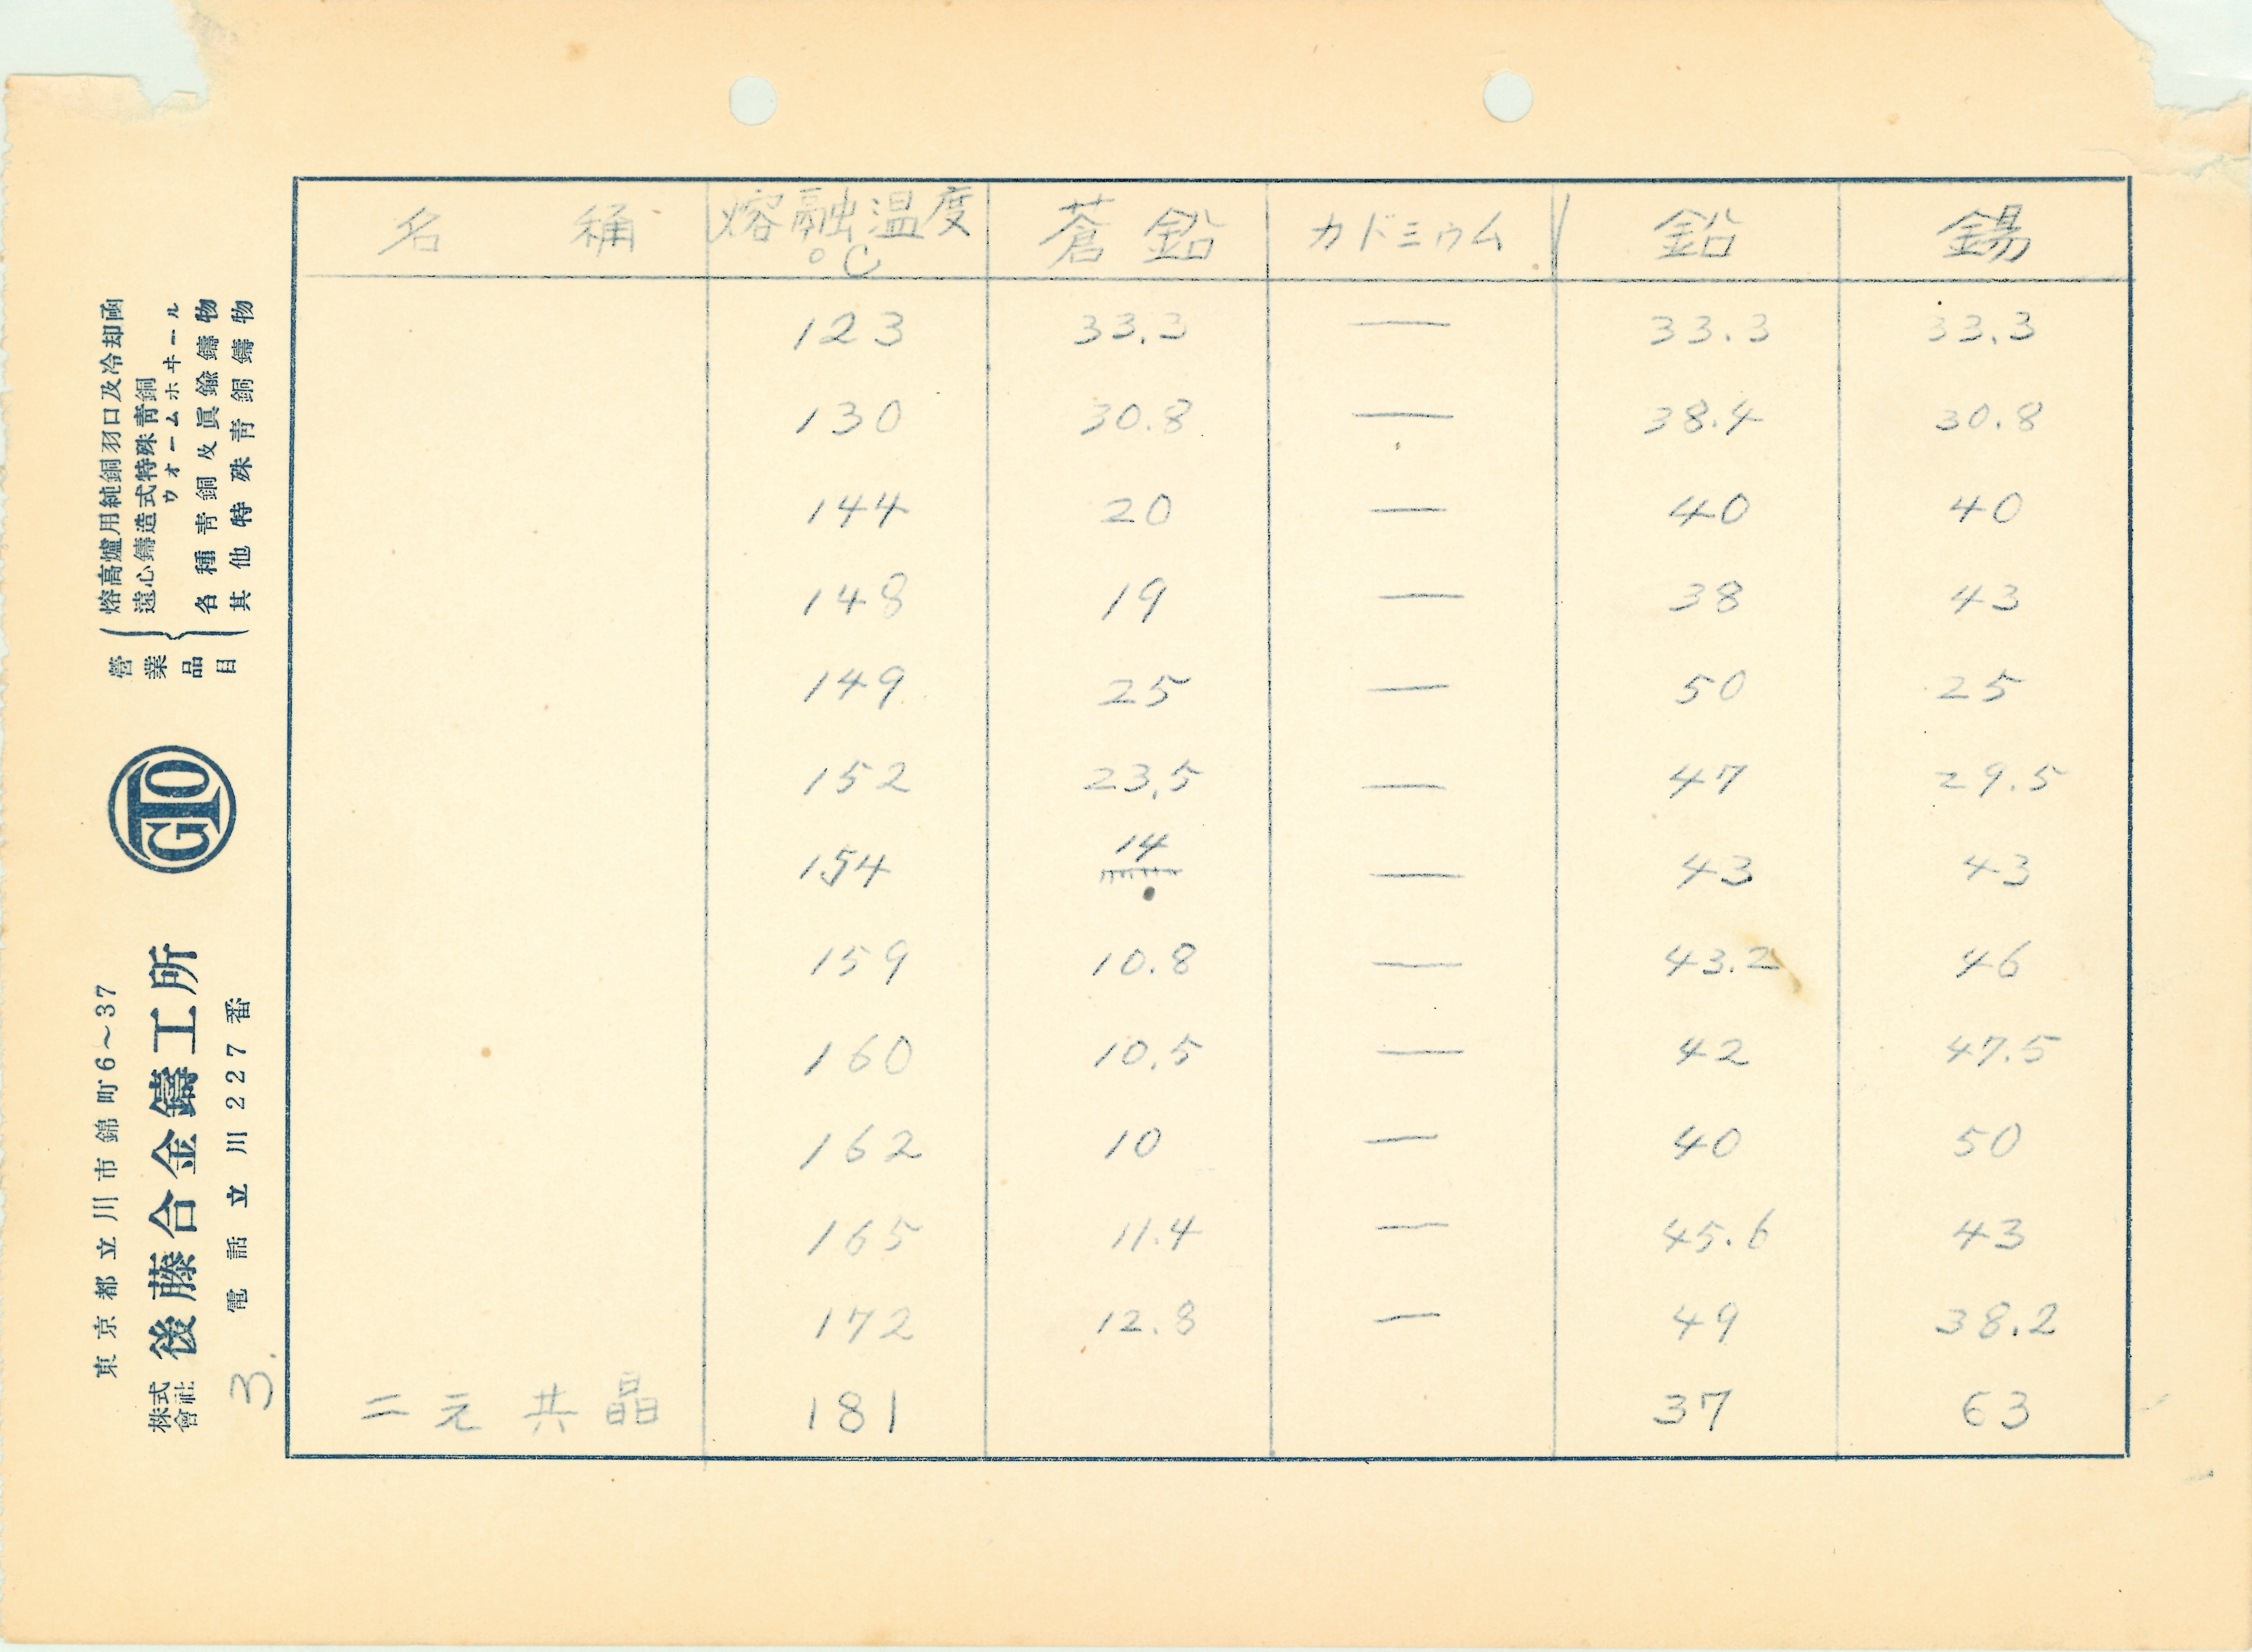 名 称 熔融温度 °C 蒼鉛 カドミウム 鉛 錫
123 33.3 — 33.3 33.3
130 30.8 — 38.4 30.8
144 20 — 40 40
148 19 — 38 43
149 25 — 50 25
152 23.5 — 47 29.5
154 14 — 43 43
159 10.8 — 43.2 46
160 10.5 — 42 47.5
162 10 — 40 50
165 11.4 — 45.6 43
172 12.8 — 49 38.2
二元共晶 181 37 63
営業品目
熔高爐用純銅羽口及冷却函
遠心鑄造式特殊青銅
ウォームホヰール
各種青銅及眞鍮鑄物
其他特殊青銅鑄物
GTO
東京都立川市錦町6~37
株式會社 後藤合金鑄工所
電話立川227番
3.